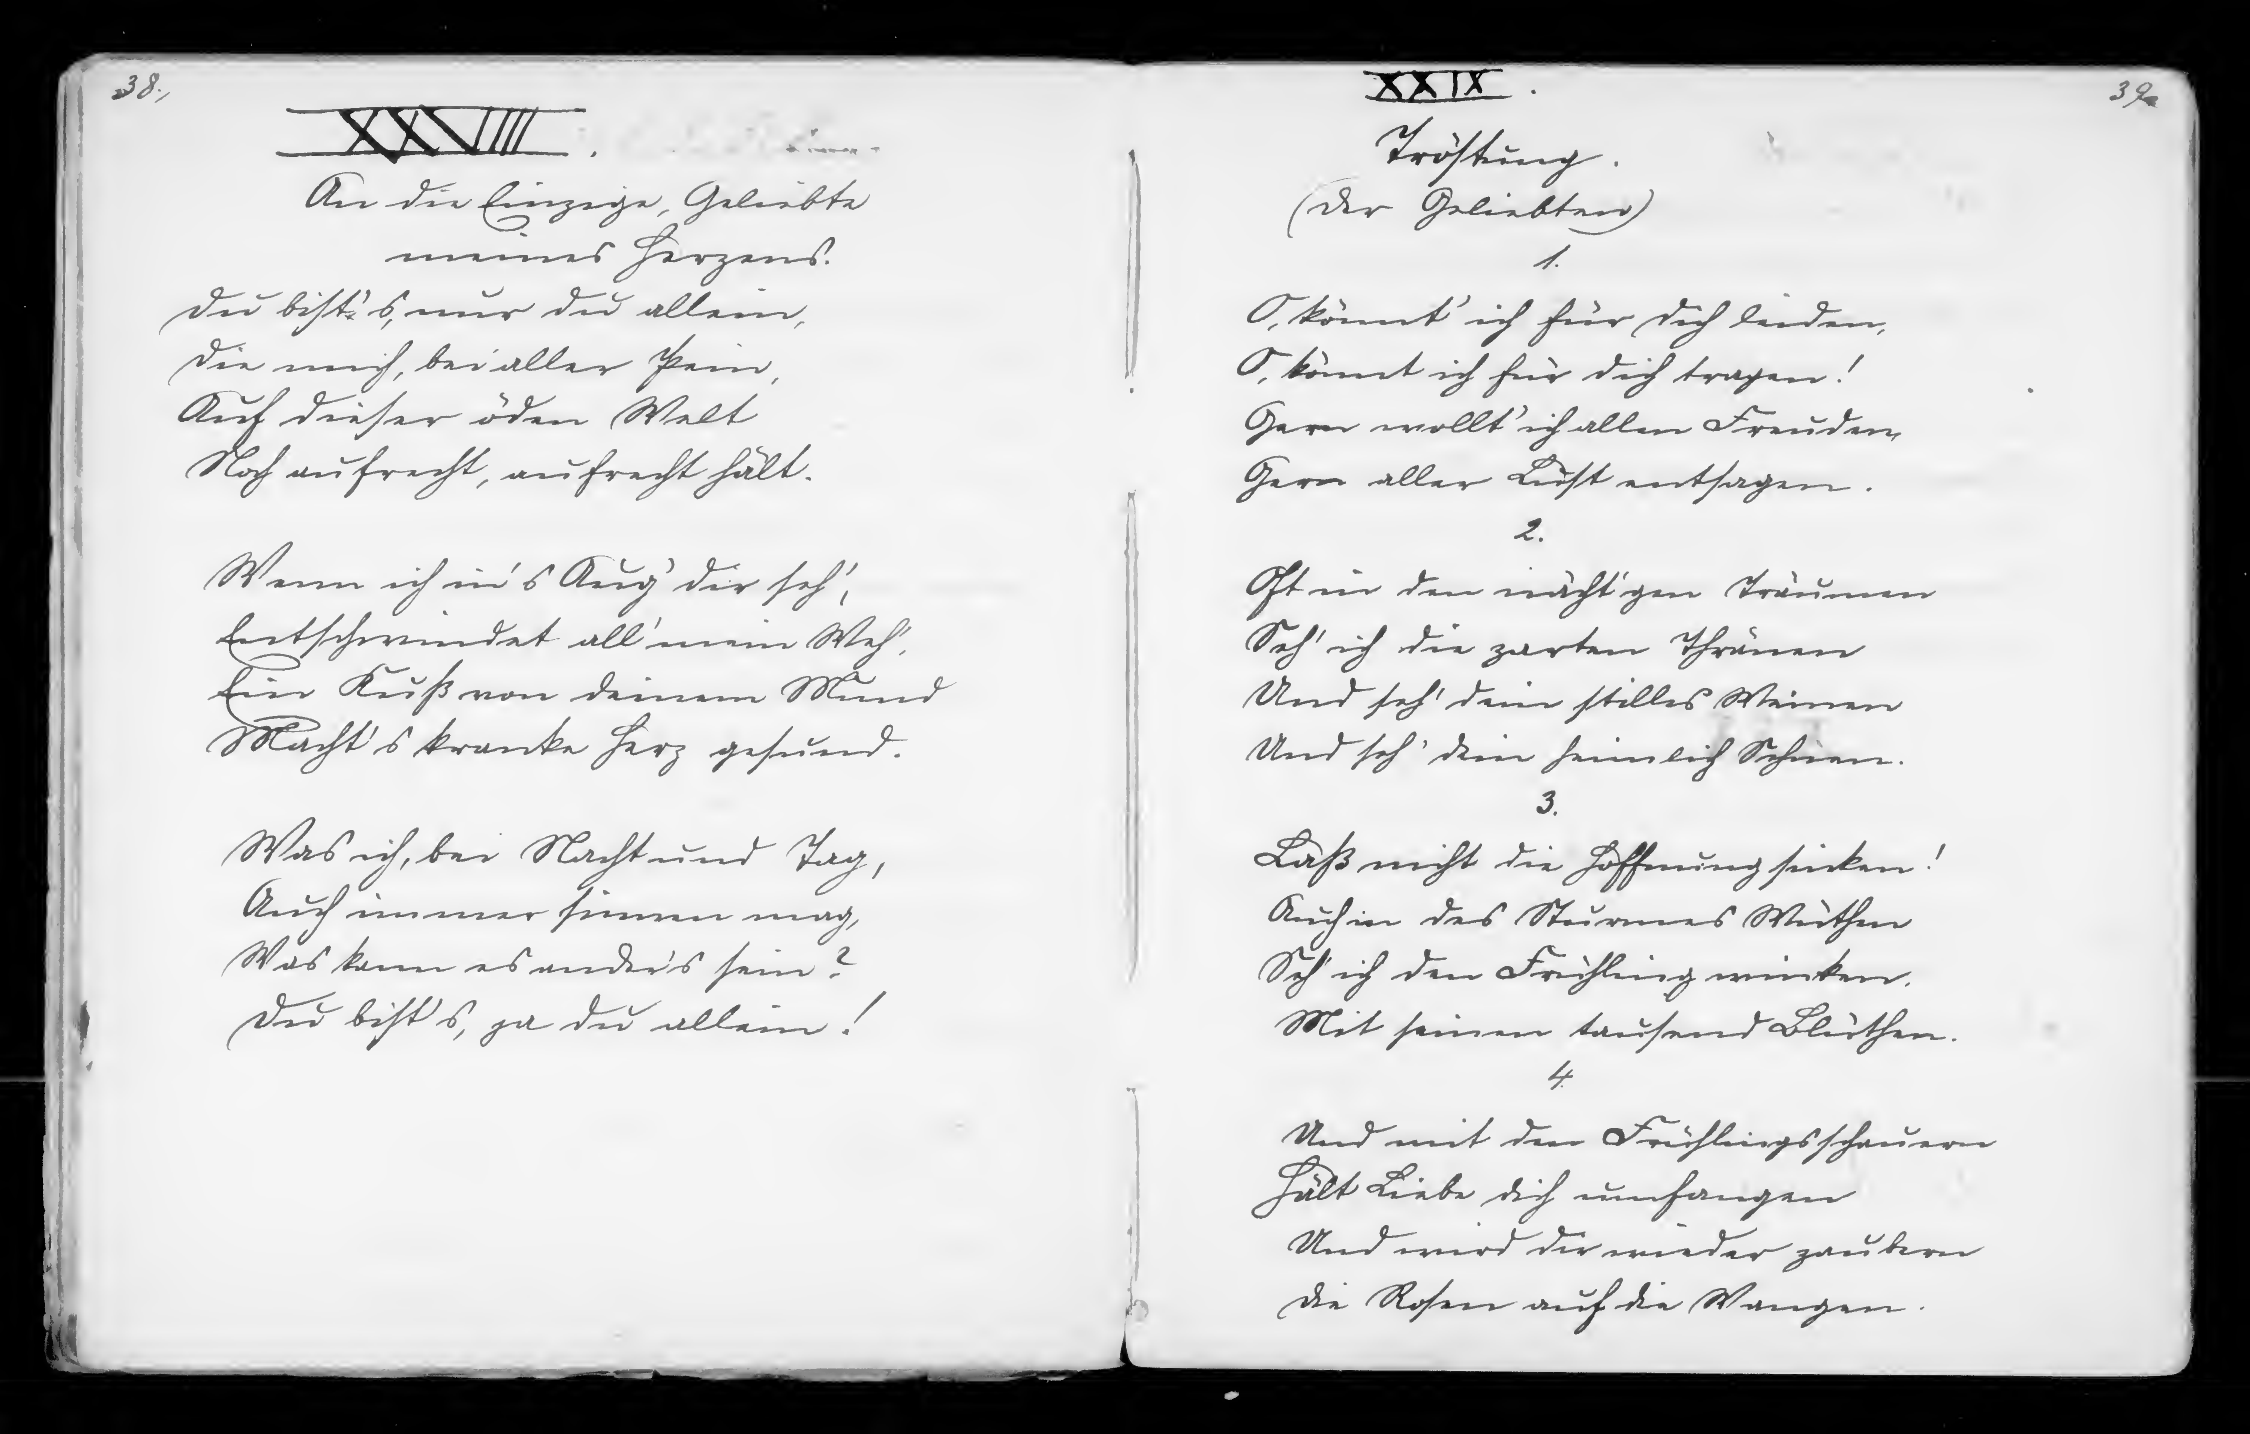 38.
XXVIII.
An die Einzige, Geliebte
meines Herzens.
Du bist's, nur du allein,
Die mich, bei aller Pein,
Auf dieser öden Welt
Noch aufrecht, aufrecht hält.
Wenn ich in's Aug' dir seh',
Entschwindet all' mein Weh'.
Ein Kuß von deinem Mund
Macht's kranke Herz gesund.
Was ich, bei Nacht und Tag,
Auch immer sinnen mag,
Was kann es anders sein?
Du bist's, ja du allein!
39.
XXIX.
Tröstung.
(Der Geliebten)
1.
O, könnt' ich für dich leiden,
O, könnt ich für dich tragen!
Gern wollt' ich allen Freuden,
Gern aller Lust entsagen.
2.
Oft in den nächt'gen Träumen
Seh' ich die zarten Thränen
Und seh' dein stilles Weinen
Und seh' dein heimlich Sehnen.
3.
Laß nicht die Hoffnung sinken!
Auch in des Sturmes Wüthen
Seh' ich den Frühling winken.
Mit seinen tausend Blüthen.
4.
Und mit den Frühlingsschauern
Hält Liebe dich umfangen
Und wird dir wieder zaubern
Die Rosen auf die Wangen.